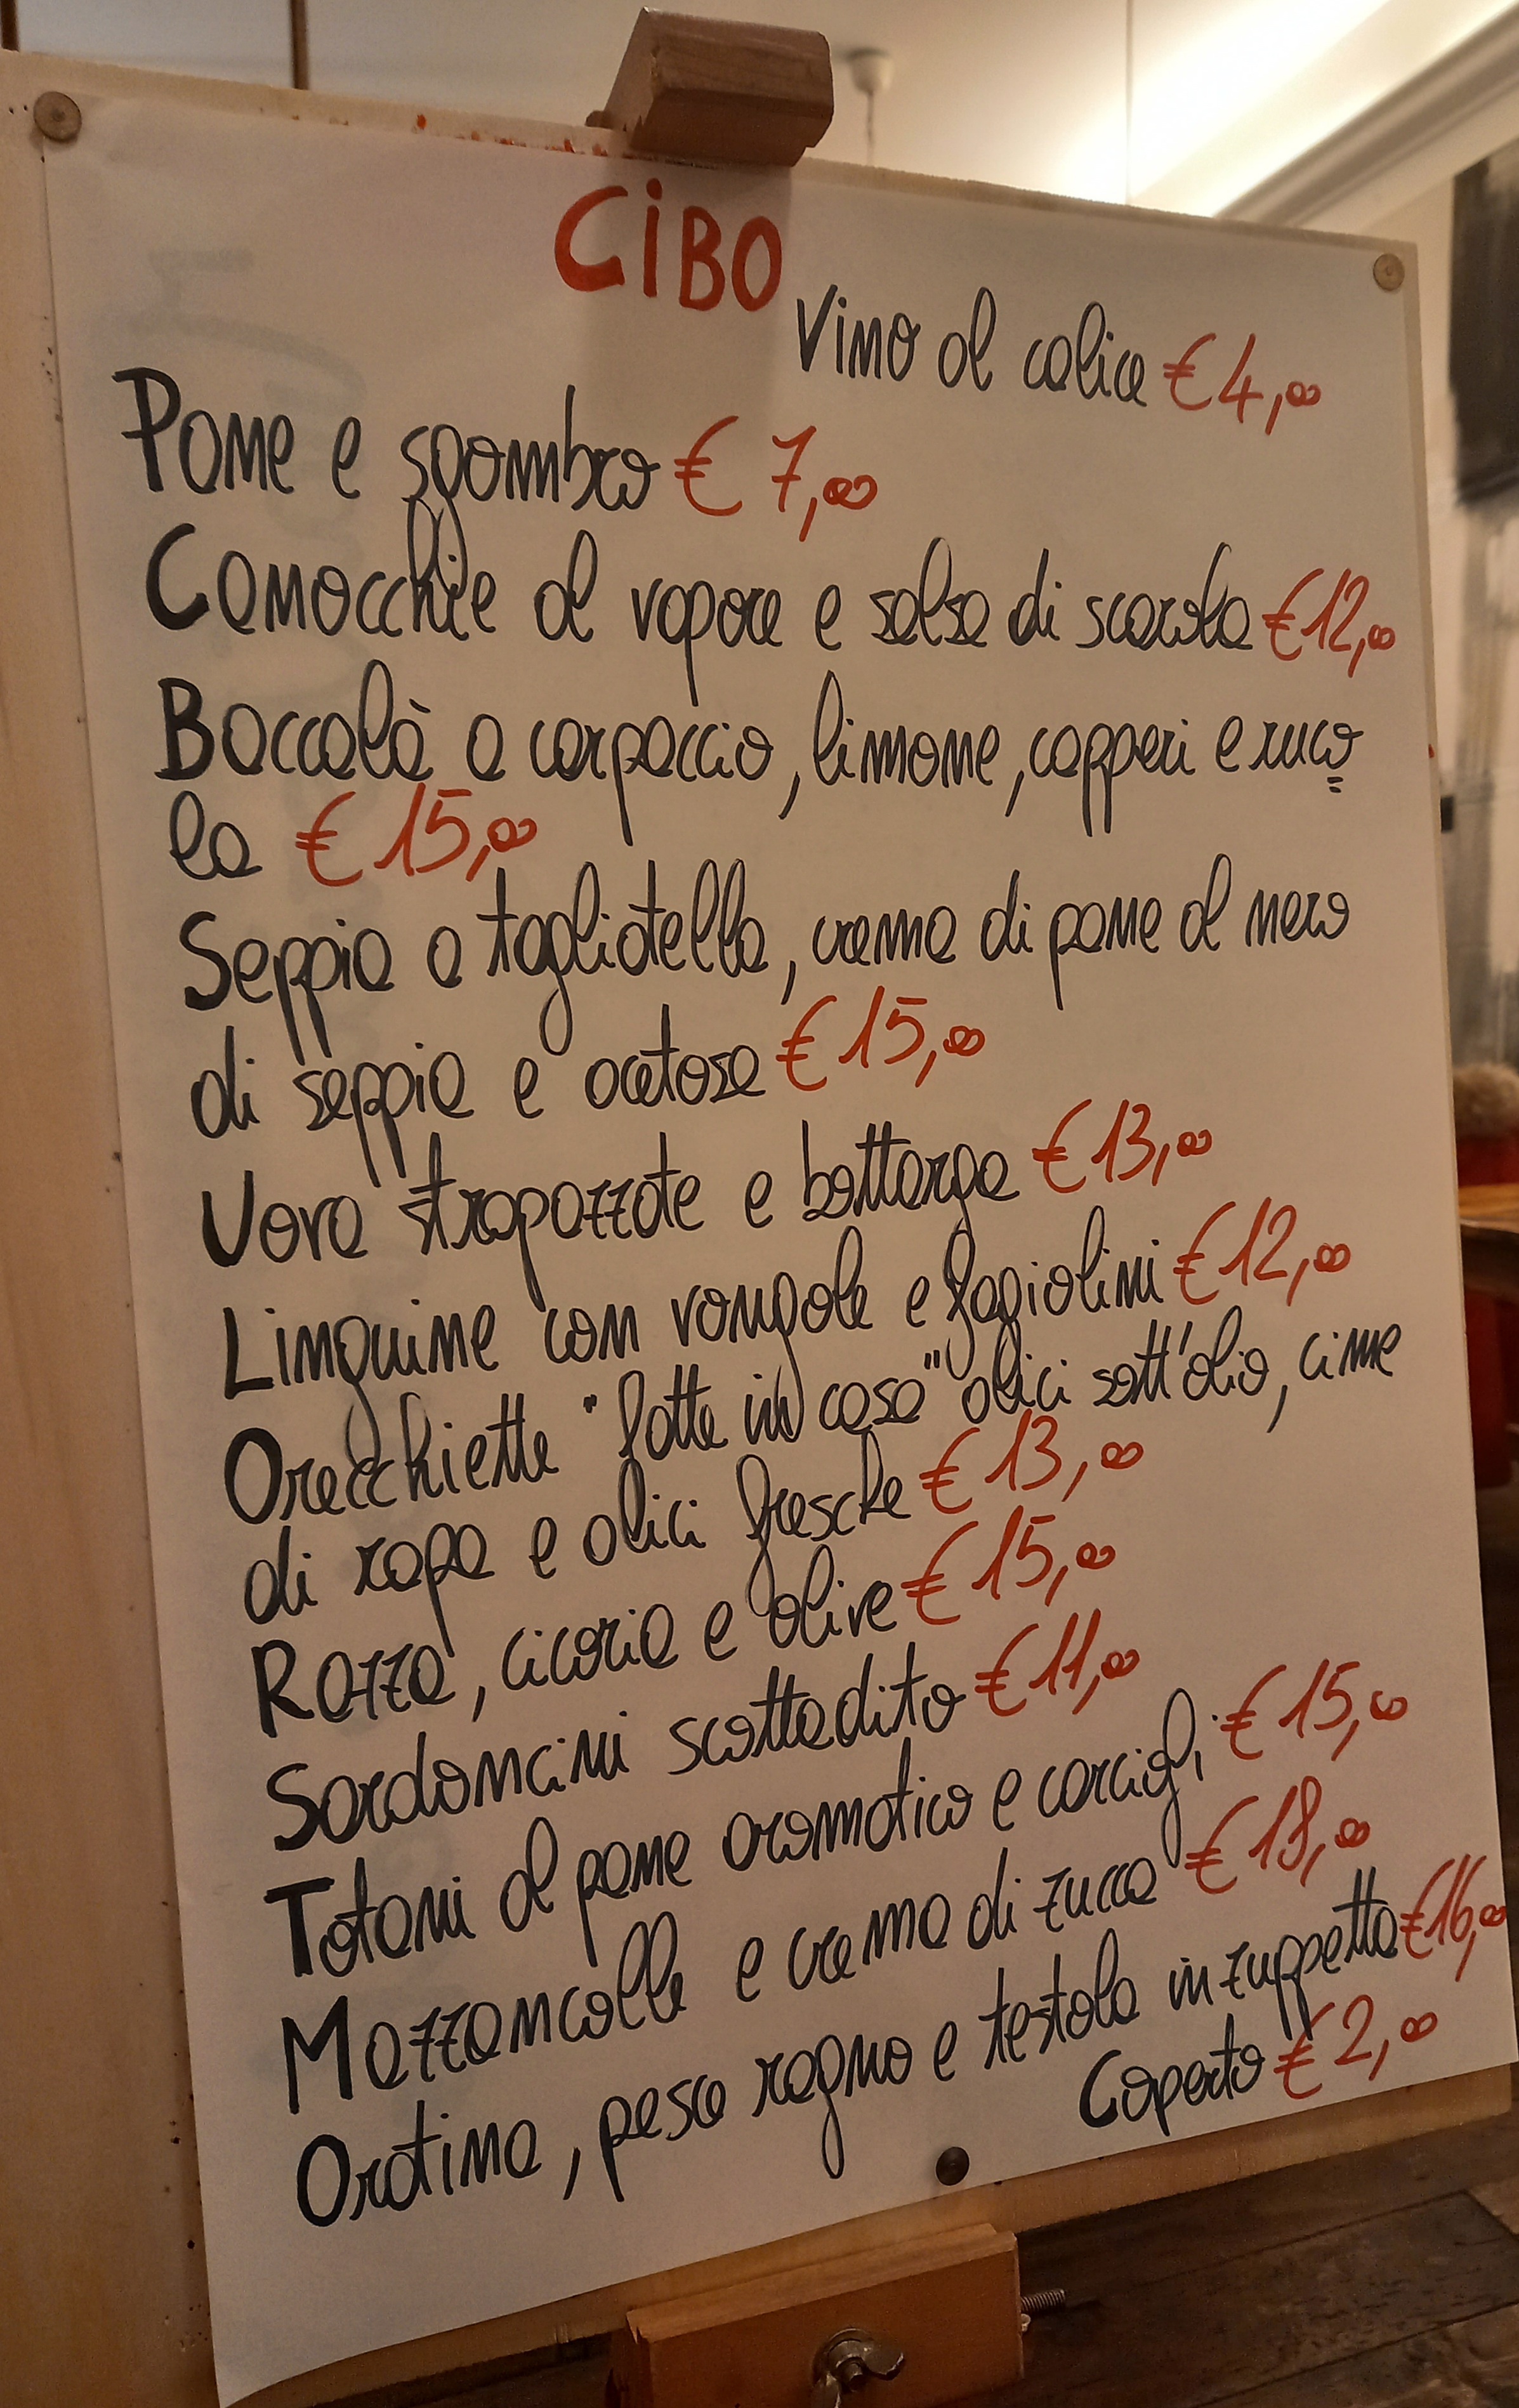 CiBO
Vino al calice € 4,00
Pane e sgombro € 7,00
Canocchie al vapore e salsa di scarola € 12,00
Baccalà a carpaccio, limone, capperi e ruco
la € 15,00
Seppia a tagliatella, crema di pane al nero
di seppia e acetosa € 15,00
Uova strapazzate e bottarga € 13,00
Linguine con vongole e fagiolini € 12,00
Orecchiette "fatte in casa" alici sott'olio, cime
di rapa e alici fresche € 13,00
Razza, cicoria e olive € 15,00
Sardoncini scottadito € 11,00
Totani al pane aromatico e carciofi € 15,00
Mazzancolle e crema di zucca € 18,00
Oratina, pesce ragno e testola in zuppetta € 16,00
Coperto € 2,00